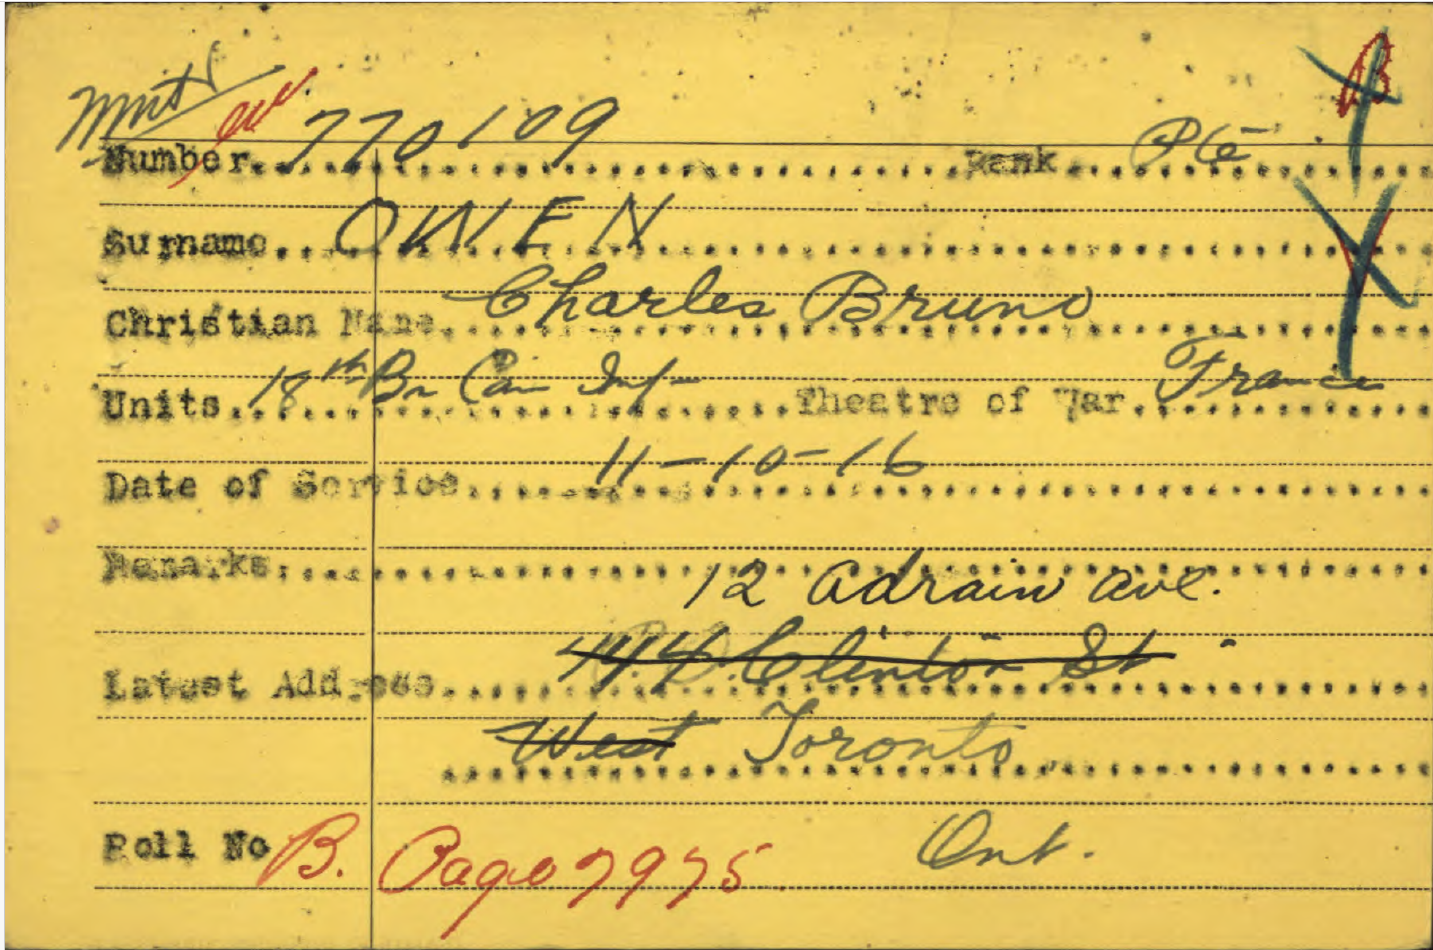 B
Number 770109 Rank Pte
Surname OWEN
Christian Name Charles Bruno
Units 18th Bn Can Inf Theatre of War France
Date of Service 11-10-16
Remarks
12 Adrain Ave.
Latest Address Clinton St
West Toronto
Roll No B. Page 7975 Ont.